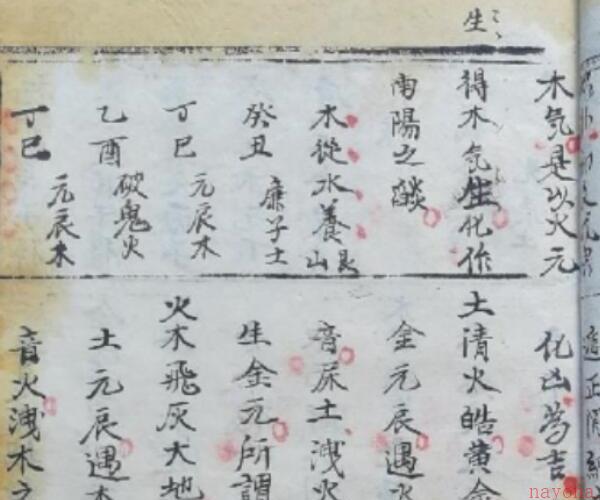 生
木気是以火元
得木気生化作
南陽之燄
木從水養艮山
癸丑 廉子土
丁巳 元辰木
乙酉 破鬼火
丁巳 元辰木
化凶為吉
土清火皓黄金
金元辰遇水
音灰土洩火
生金元所謂
火木飛灰大地
土元辰遇木
音火洩木之
nayona